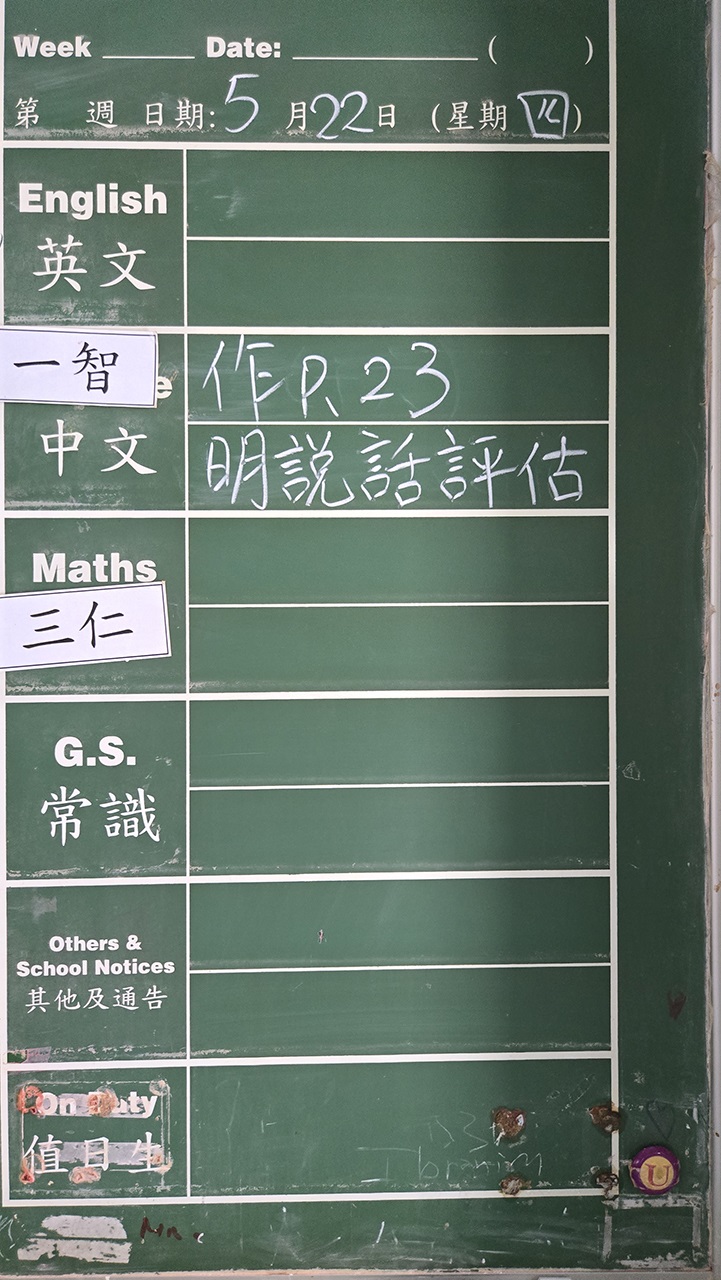 Week _____ Date: _____________ (      )
第 週 日期: 5 月 22 日 (星期 四)
English
英文
一智
e
作 P. 23
中文
明說話評估
Maths
三仁
G.S.
常識
Others &
School Notices
其他及通告
On Duty
值日生
U